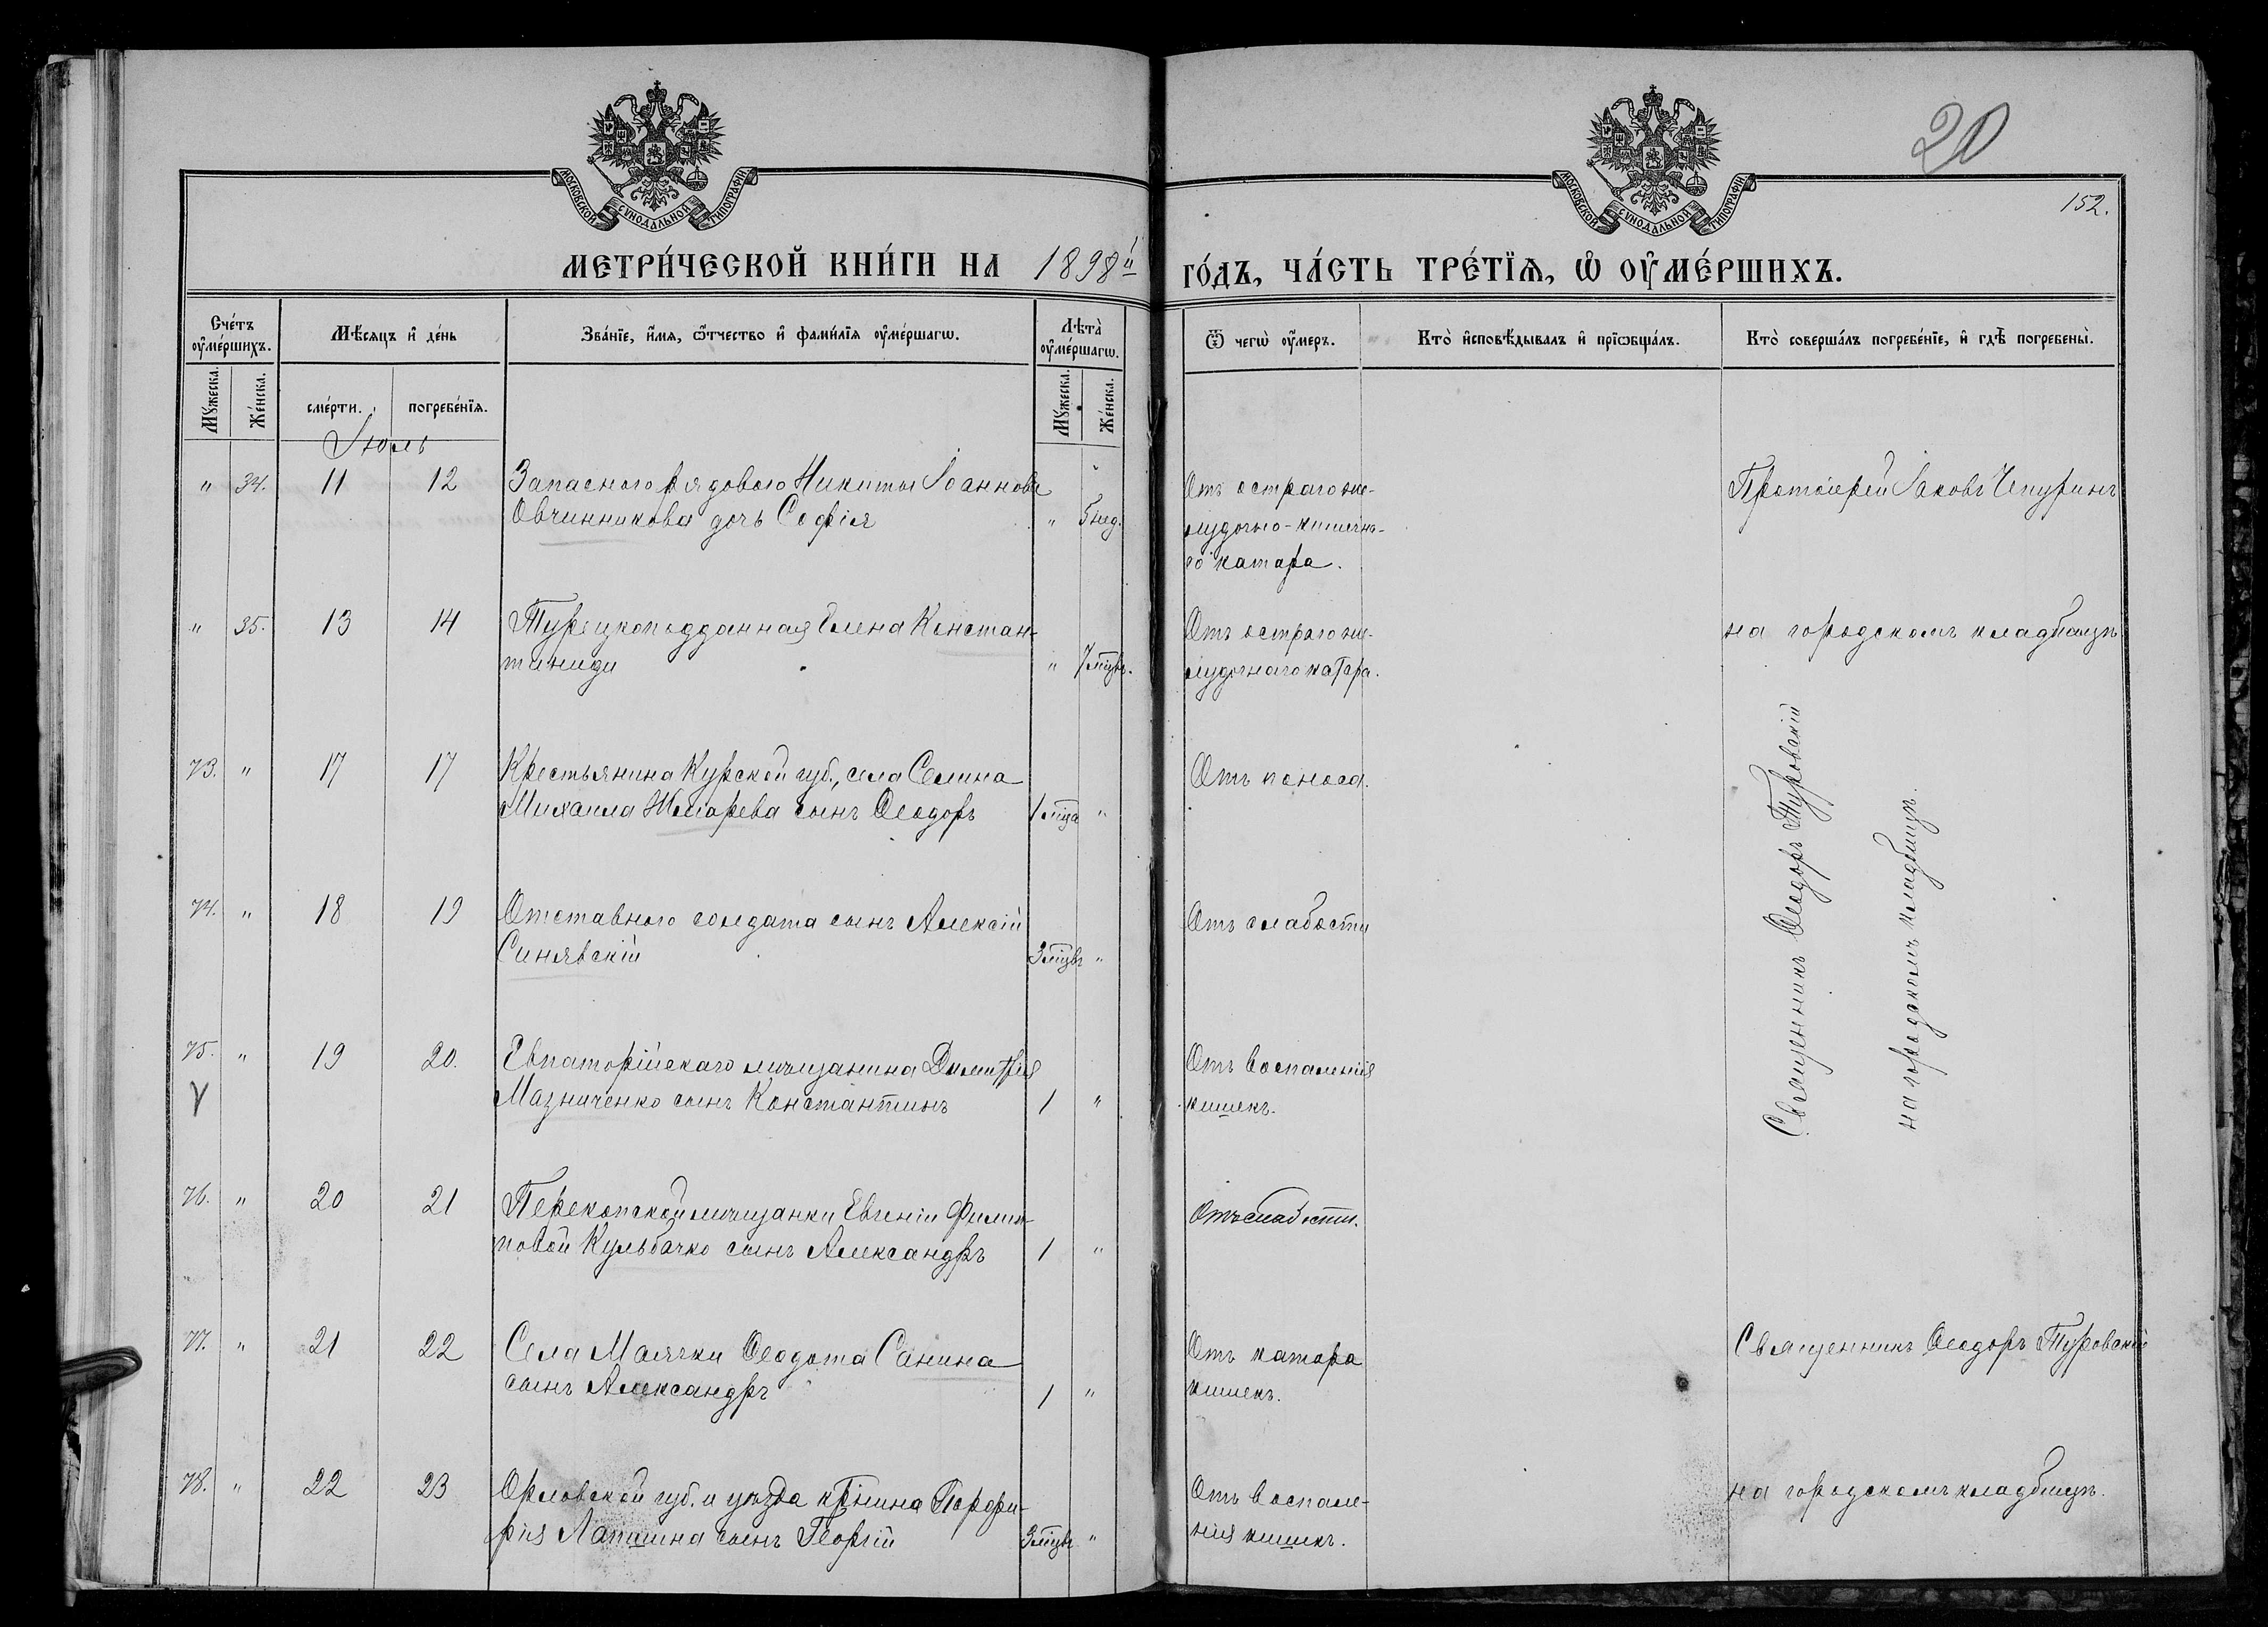 МОСКОВСКОЙ СѴНОДАЛЬНОЙ ТИПОГРАФІИ
МОСКОВСКОЙ СѴНОДАЛЬНОЙ ТИПОГРАФІИ
20
152.
МЕТРИ́ЧЕСКОЙ КНИ́ГИ НА 1898й ГО́ДЪ, ЧА́СТЬ ТРЕ́ТЇѦ, Ѡ҆ ОУ҆МЕ́РШИХЪ.
Сче́тъ оу҆ме́ршихъ.
Мѣ́сяцъ и҆ де́нь
Зва́нїе, и҆́мя, ѻ҆́тчество и҆ фами́лїя оу҆ме́ршагѡ.
Лѣта̀ оу҆ме́ршагѡ.
Ѿ чегѡ̀ оу҆́меръ.
Кто̀ и҆сповѣ́дывалъ и҆ прїѡбща́лъ.
Кто̀ соверша́лъ погребе́нїе, и҆ гдѣ̀ погребены̀.
Мꙋ́жеска. Же́нска. сме́рти. погребе́нїя. Мꙋ́жеска. Же́нска.
Іюль
" 34. 11 12 Запасного рядового Никиты Іоаннова
Овчинникова дочь Софія " 5 нед.
Отъ остраго же-
лудочно-кишечна-
го катара.
Протоіерей Іаковъ Чепуринъ
" 35. 13 14 Турецкоподданная Елена Констан-
тиниди " 7 мцвъ.
Отъ остраго же-
лудочнаго катара.
на городскомъ кладбищѣ
73. " 17 17 Крестьянина Курской губ., села Селина
Михаила Жмарева сынъ Ѳеодоръ 1 мца "
Отъ поноса.
Священникъ Ѳеодоръ Туровскій
на городскомъ кладбищѣ.
74. " 18 19 Отставного солдата сынъ Алексій
Синявскій 3 мцвъ "
Отъ слабости
75. " 19 20. Евпаторійскаго мѣщанина Димитрія
Мазниченко сынъ Константинъ 1 "
Отъ воспаленія
кишекъ.
76. " 20 21 Перекопской мѣщанки Евгеніи Филип-
повой Кульбачко сынъ Александръ 1 "
Отъ слабости.
77. " 21 22 Села Маячки Ѳеодота Санина
сынъ Александръ 1 "
Отъ катара
кишекъ.
Священникъ Ѳеодоръ Туровскій
78. " 22 23 Орловской губ. и уѣзда кр̃нина Порфи-
рія Лапшина сынъ Георгій 3 мцвъ "
Отъ воспале-
нія кишекъ.
на городскомъ кладбищѣ.